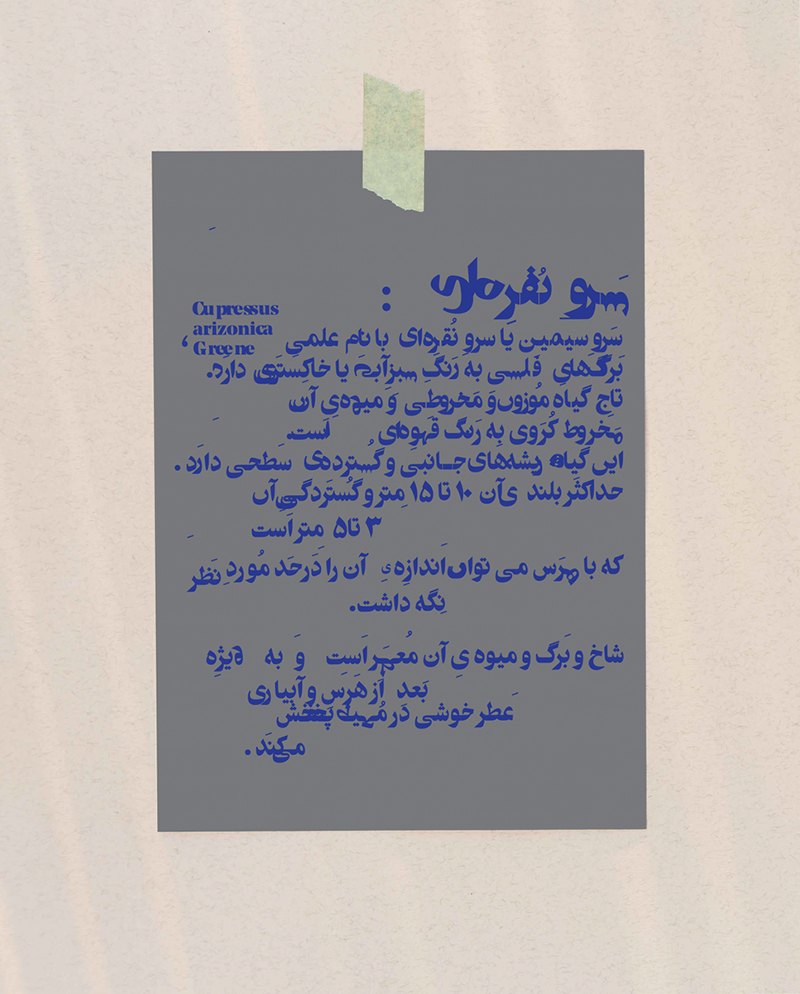 سَرو نُقره‌ای :
سَرو سیمین یا سرو نُقره‌ای با نام علمی
Cupressus
arizonica
Greene ،
بَرگ‌های فَلسی به رَنگِ سبزآبی یا خاکِستَری دارَد.
تاجِ گیاه مُوزون و مَخروطی و میوه‌ی آن
مَخروط کُرَوی بِه رَنگ قَهوه‌ای اَست.
این گیاه ریشه‌های جـانبی و گُستَرده‌ی سَطحی دارَد.
حداکثَر بلند ی‌آن ۱۰ تا ۱۵ مِتر و گُستَردگی‌آن
۳ تا ۵ متر اَست
که با هَرَس می توان اَندازه‌ِی آن را دَرحَد مُورد نَظَر
نِگه داشت.
شاخ و بَرگ و میوه ی آن مُعَطَر اَست وَ به وَیژِه
بَعد اَز هَرَس و آبیاری
عَطر خوشی دَر مُحیط پَخش
می‌کُنَد.